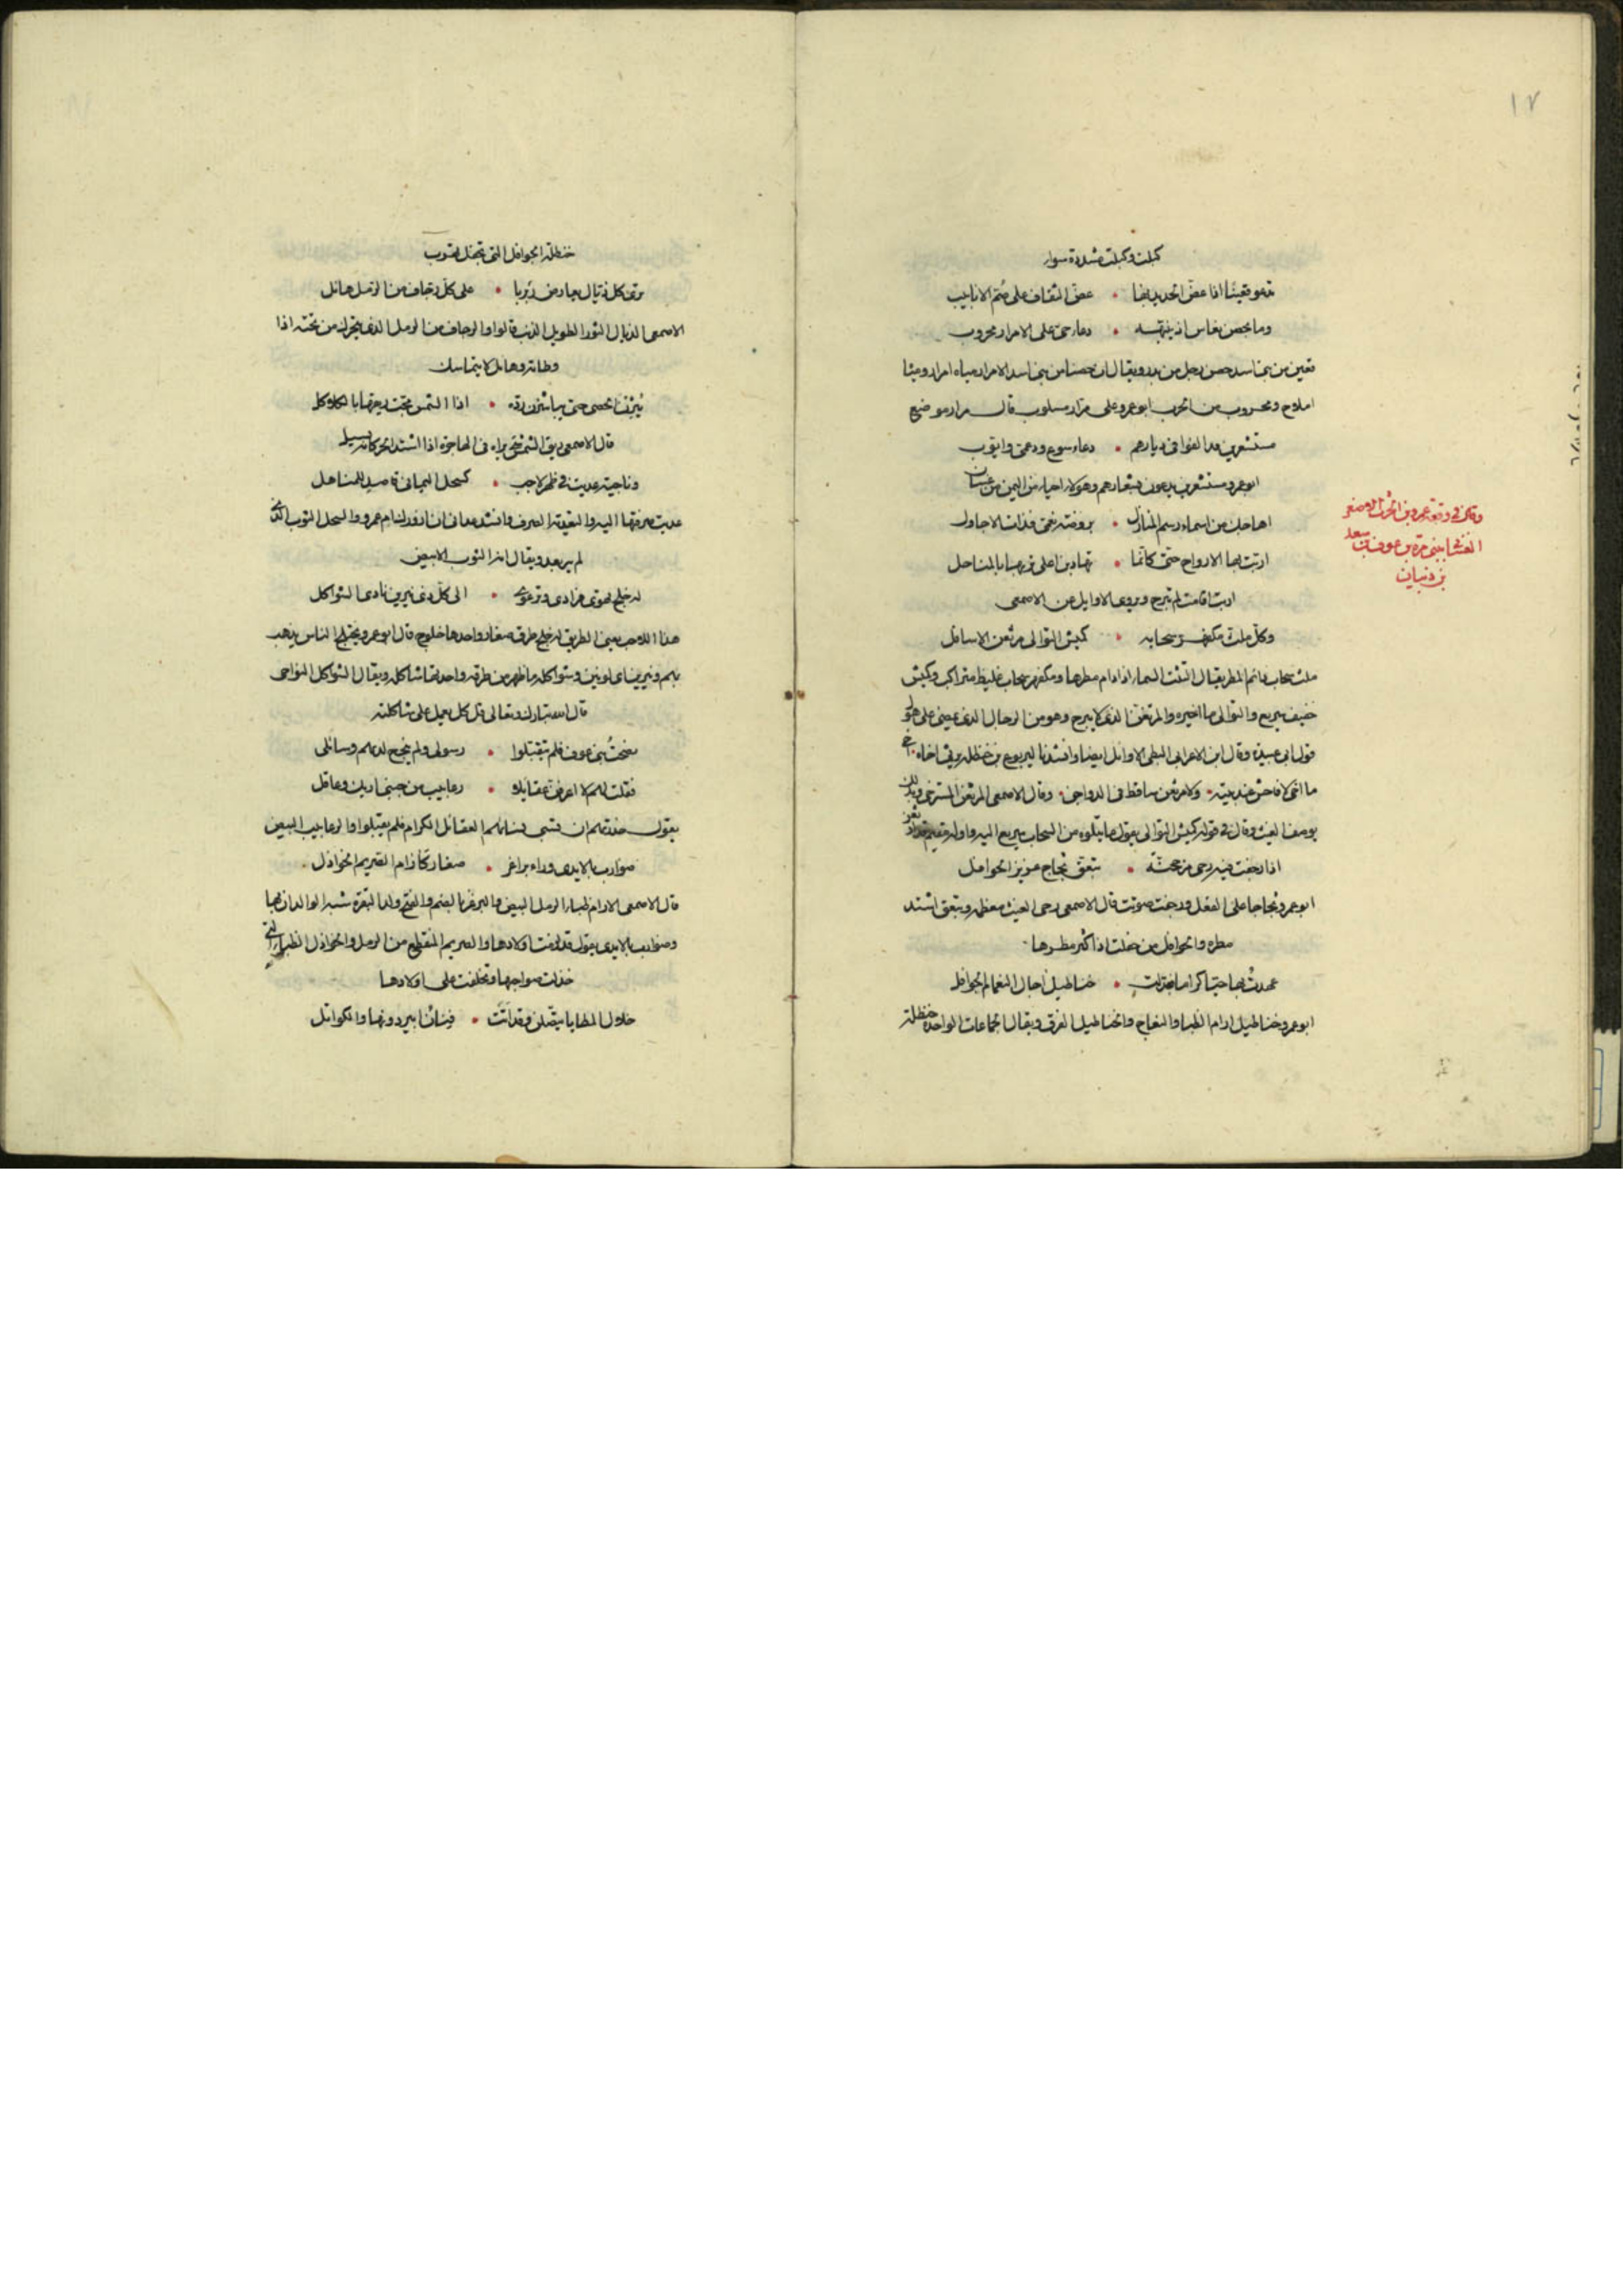 ١٧
كبلت وكبلت مشددة سوار
تدعو قعينا اذا عض الحديد بها • عض الثقاف على صم الانابيب
وما بحصن نعاس اذ ينبهه • دعاء حى على الامرار محروب
قعين من بنى اسد حصن رجل من بدر ويقال ان حصنا من بنى اسد الامرار مياه امرار ومياه
املاح ومحروب من الحرب ابو عمرو على مرار مسلوب قال مرار موضع
مستشعرين قد الفوا فى ديارهم • دعاء سوع ودعمى وايوب
ابو عمرو مستشعرين يدعون بشعارهم وهولاء احياء من اليمن من غسان
وقال فى وقعة عمرو بن الحرث الاصغر
الغسانى ببنى مرة بن عوف بن سعد
بن ذبيان
اهاجك من اسماء رسم المنازل • بروضة نعمى فذات الاجاول
اربت بها الارواح حتى كانما • تهادين اعلى تربها بالمناخل
اربت اقامت لم تبرح ويروى الاوايل عن الاصمعى
وكل ملث مكفهر سحابه • كميش التوالى مرثعن الاسافل
ملث سحاب دائم المطر يقال التثت السماء اذا دام مطرها ومكفهر سحاب غليظ متراكب وكميش
خفيف سريع والتوالى مااخيره والمرثعن الذى لا يبرح وهو من الرجال الذى يمضى على هول
قول ابى عبيدة وقال ابن الاعرابى البطى الاوائل ايضا وانشدنا ليربوع بن حنظله يرثى اخاه
ما اخى لا فاحش عند بيته • ولا مرثعن ساقط فى الدواجن • وقال الاصمعى المرثعن المسترخى
يوصف الغيث وقال فى قوله كميش التوالى يقول ما يتلوه من السحاب سريع اليه واوله مقيم
اذا رجفت فيه رحى مرجحنة • تبعق ثجاج غزير الحوافل
ابو عمرو ثجاجا على الفعل ورجفت صوتت قال الاصمعى رحى الغيث معظمه وتبعق اشتد
مطره والحوافل من حفلت اذا كثر مطرها
عهدت بها حيا كراما فبدلت • خناطيل اجال النعام الجوافل
ابو عمرو خناطيل ارام الظبا والنعاج والخناطيل الفرق ويقال الجماعات الواحدة خنطلة
خنطلة الجوافل التى تجفل تهرب
ترى كل ذيال يعارض ربربا • على كل رجاف من الرمل هائل
الاصمعى الذيال الثور الطويل الذنب قالوا والرجاف من الرمل الذى يتحرك من تحته اذا
وطئته وهائل لا يتماسك
يثرن الحصى حتى يباشرن برده • اذا الشمس مجت ريقها بالكلاكل
قال الاصمعى ريق الشمس شى يراه فى الهاجرة اذا اشتد الحر كانه يسيل
وناجية عديت فى ظهر لاحب • كسحل اليمانى قاصد للمناهل
عديت صرفتها اليه والتعدية الصرف وانشد عدانى ان ازورك ام عمرو والسحل الثوب الذى
لم يبرم ويقال انه الثوب الابيض
له خلج تهوى فرادى وترعوى • الى كل ذى نيرين بادى الشواكل
هذا اللاحب يعنى الطريق له خلج طرق صغار واحدها خلوج قال ابو عمرو يختلج الناس يذهب
بهم ونيرين اى لونين وشواكله ما ظهر من طرقه واحدتها شاكله ويقال الشواكل النواحى
قال الله تبارك وتعالى قل كل يعمل على شاكلته
نصحت بنى عوف فلم يتقبلوا • رسولى ولم تنجح لديهم وسائلى
فقلت لهم لا اعرفن عقايلا • رعابيب من جنبى اريك وعاقل
يقول حذرتهم ان تسبى نساءهم العقائل الكرام فلم يقبلوا والرعابيب البيض
ضوارب بالايدى وراء براغز • صغار كآرام الصريم الخواذل
قال الاصمعى الارام ظباء الرمل البيض والبرغز بالضم والفتح ولد البقرة شبه الولدان بها
وضوارب بالايدى يقول قد الفت اولادها والصريم المنقطع من الرمل والخواذل الظباء التى
خذلت صواحبها وتخلفت على اولادها
خلال المطايا يتصلن وقد اتت • قنان ابير دونها والكواثل